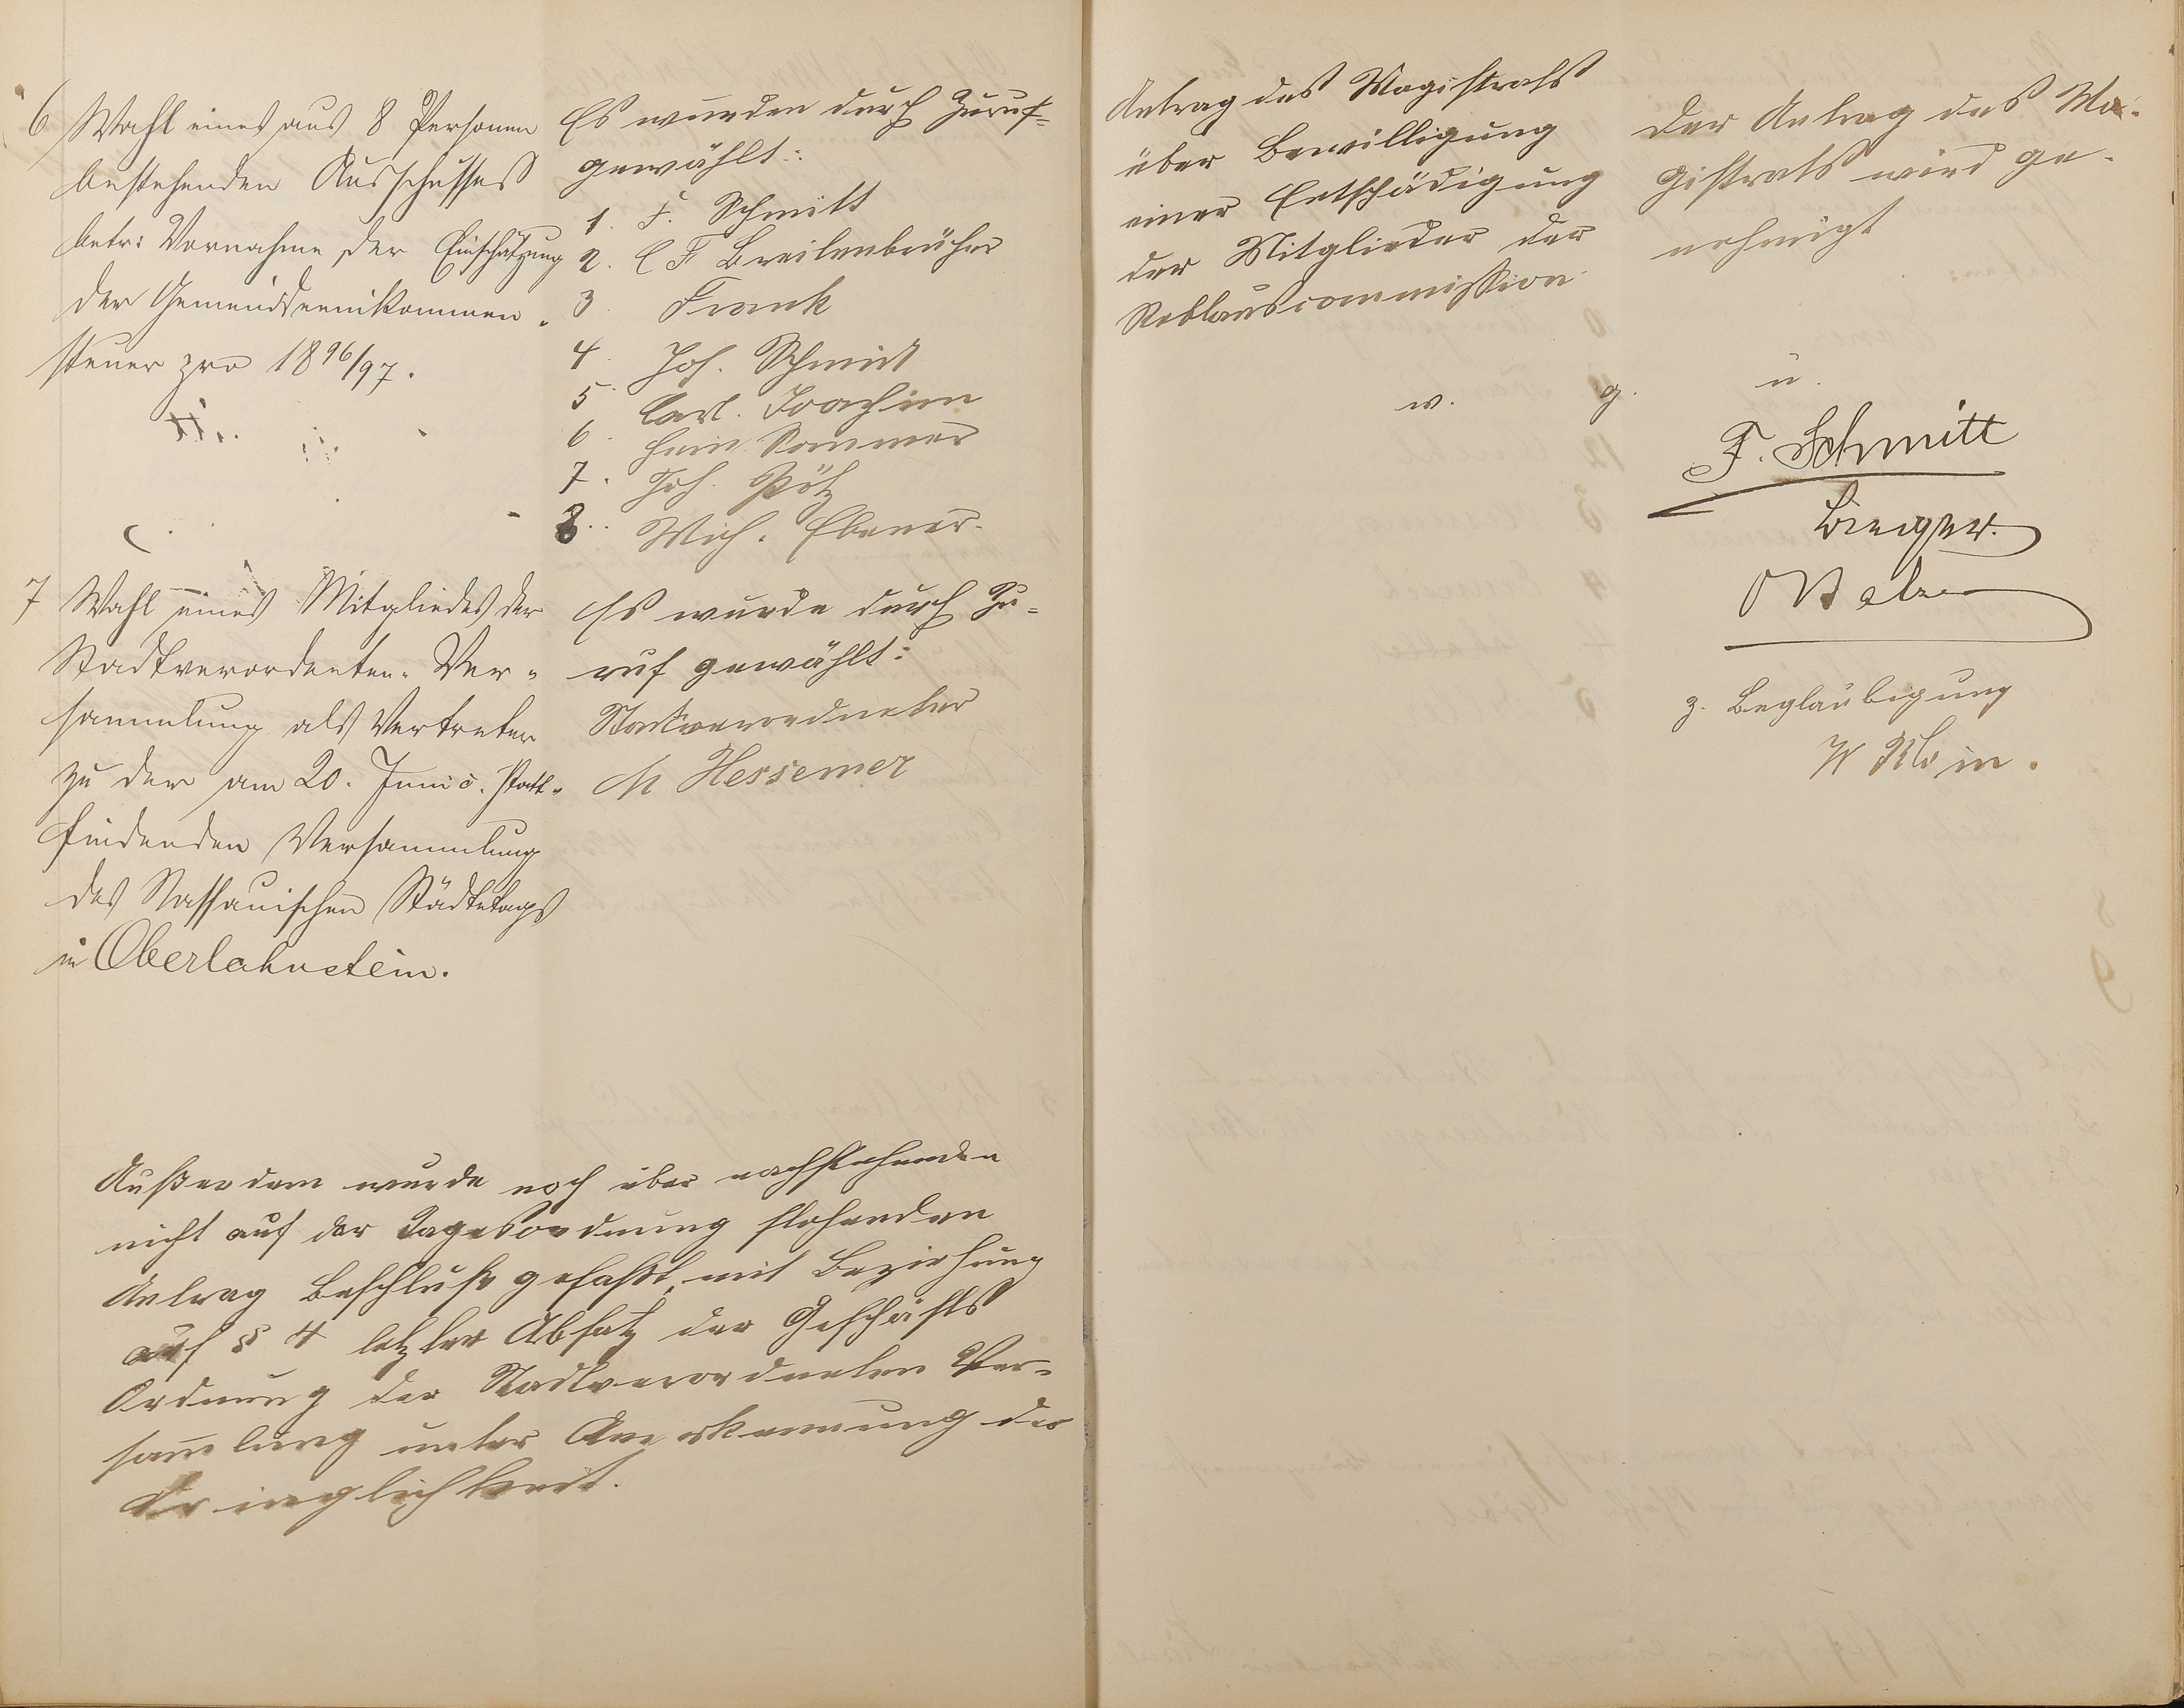 6 Wahl eines aus 8 Personen
bestehenden Ausschusses
betr: Vornahme der Einschätzung
der Gemeindeeinkommen-
steuer pro 1896/97.
Es wurden durch Zuruf
gewählt:
1. F. Schmitt
2. C F Breilenbrücher
3 Frank
4. Joh. Schmidt
5. Carl. Joachim
6. Hein. Sommer
7. Joh.
8. Mich. Ebener.
7 Wahl eines Mitgliedes der
Stadtverordneten-Ver-
sammlung als Vertreter
zu der am 20. Juni c. statt-
findenden Versammlung
des Nassauischen Städtetags
in Oberlahnstein.
Es wurde durch Zu-
ruf gewählt:
Stadtverordneter
M Hessemer
Außerdem wurde noch über nachstehenden
nicht auf der Tagesordnung stehenden
Antrag Beschluß gefaßt, mit Beziehung
auf § 4 letzter Absatz der Geschäfts
Ordnung der Stadtverordneten Ver-
samlung unter Anerkennung der
Dringlichkeit.
Antrag des Magistrats
über Bewilligung
einer Entschädigung
der Mitglieder der
Reblauscommission
Der Antrag des Ma-
gistrats wird ge-
nehmigt
w. g. u.
F. Schmitt
z. Beglaubigung
W Klein.